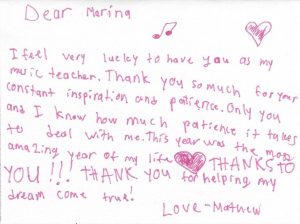 Dear Marina
I feel very lucky to have you as my
music teacher. Thank you so much for your
constant inspiration and patience. Only you
and I know how much patience it takes
to deal with me. This year was the most
amazing year of my life THANKS TO
YOU!!! THANK YOU for helping my
dream come true!
Love-Mathew